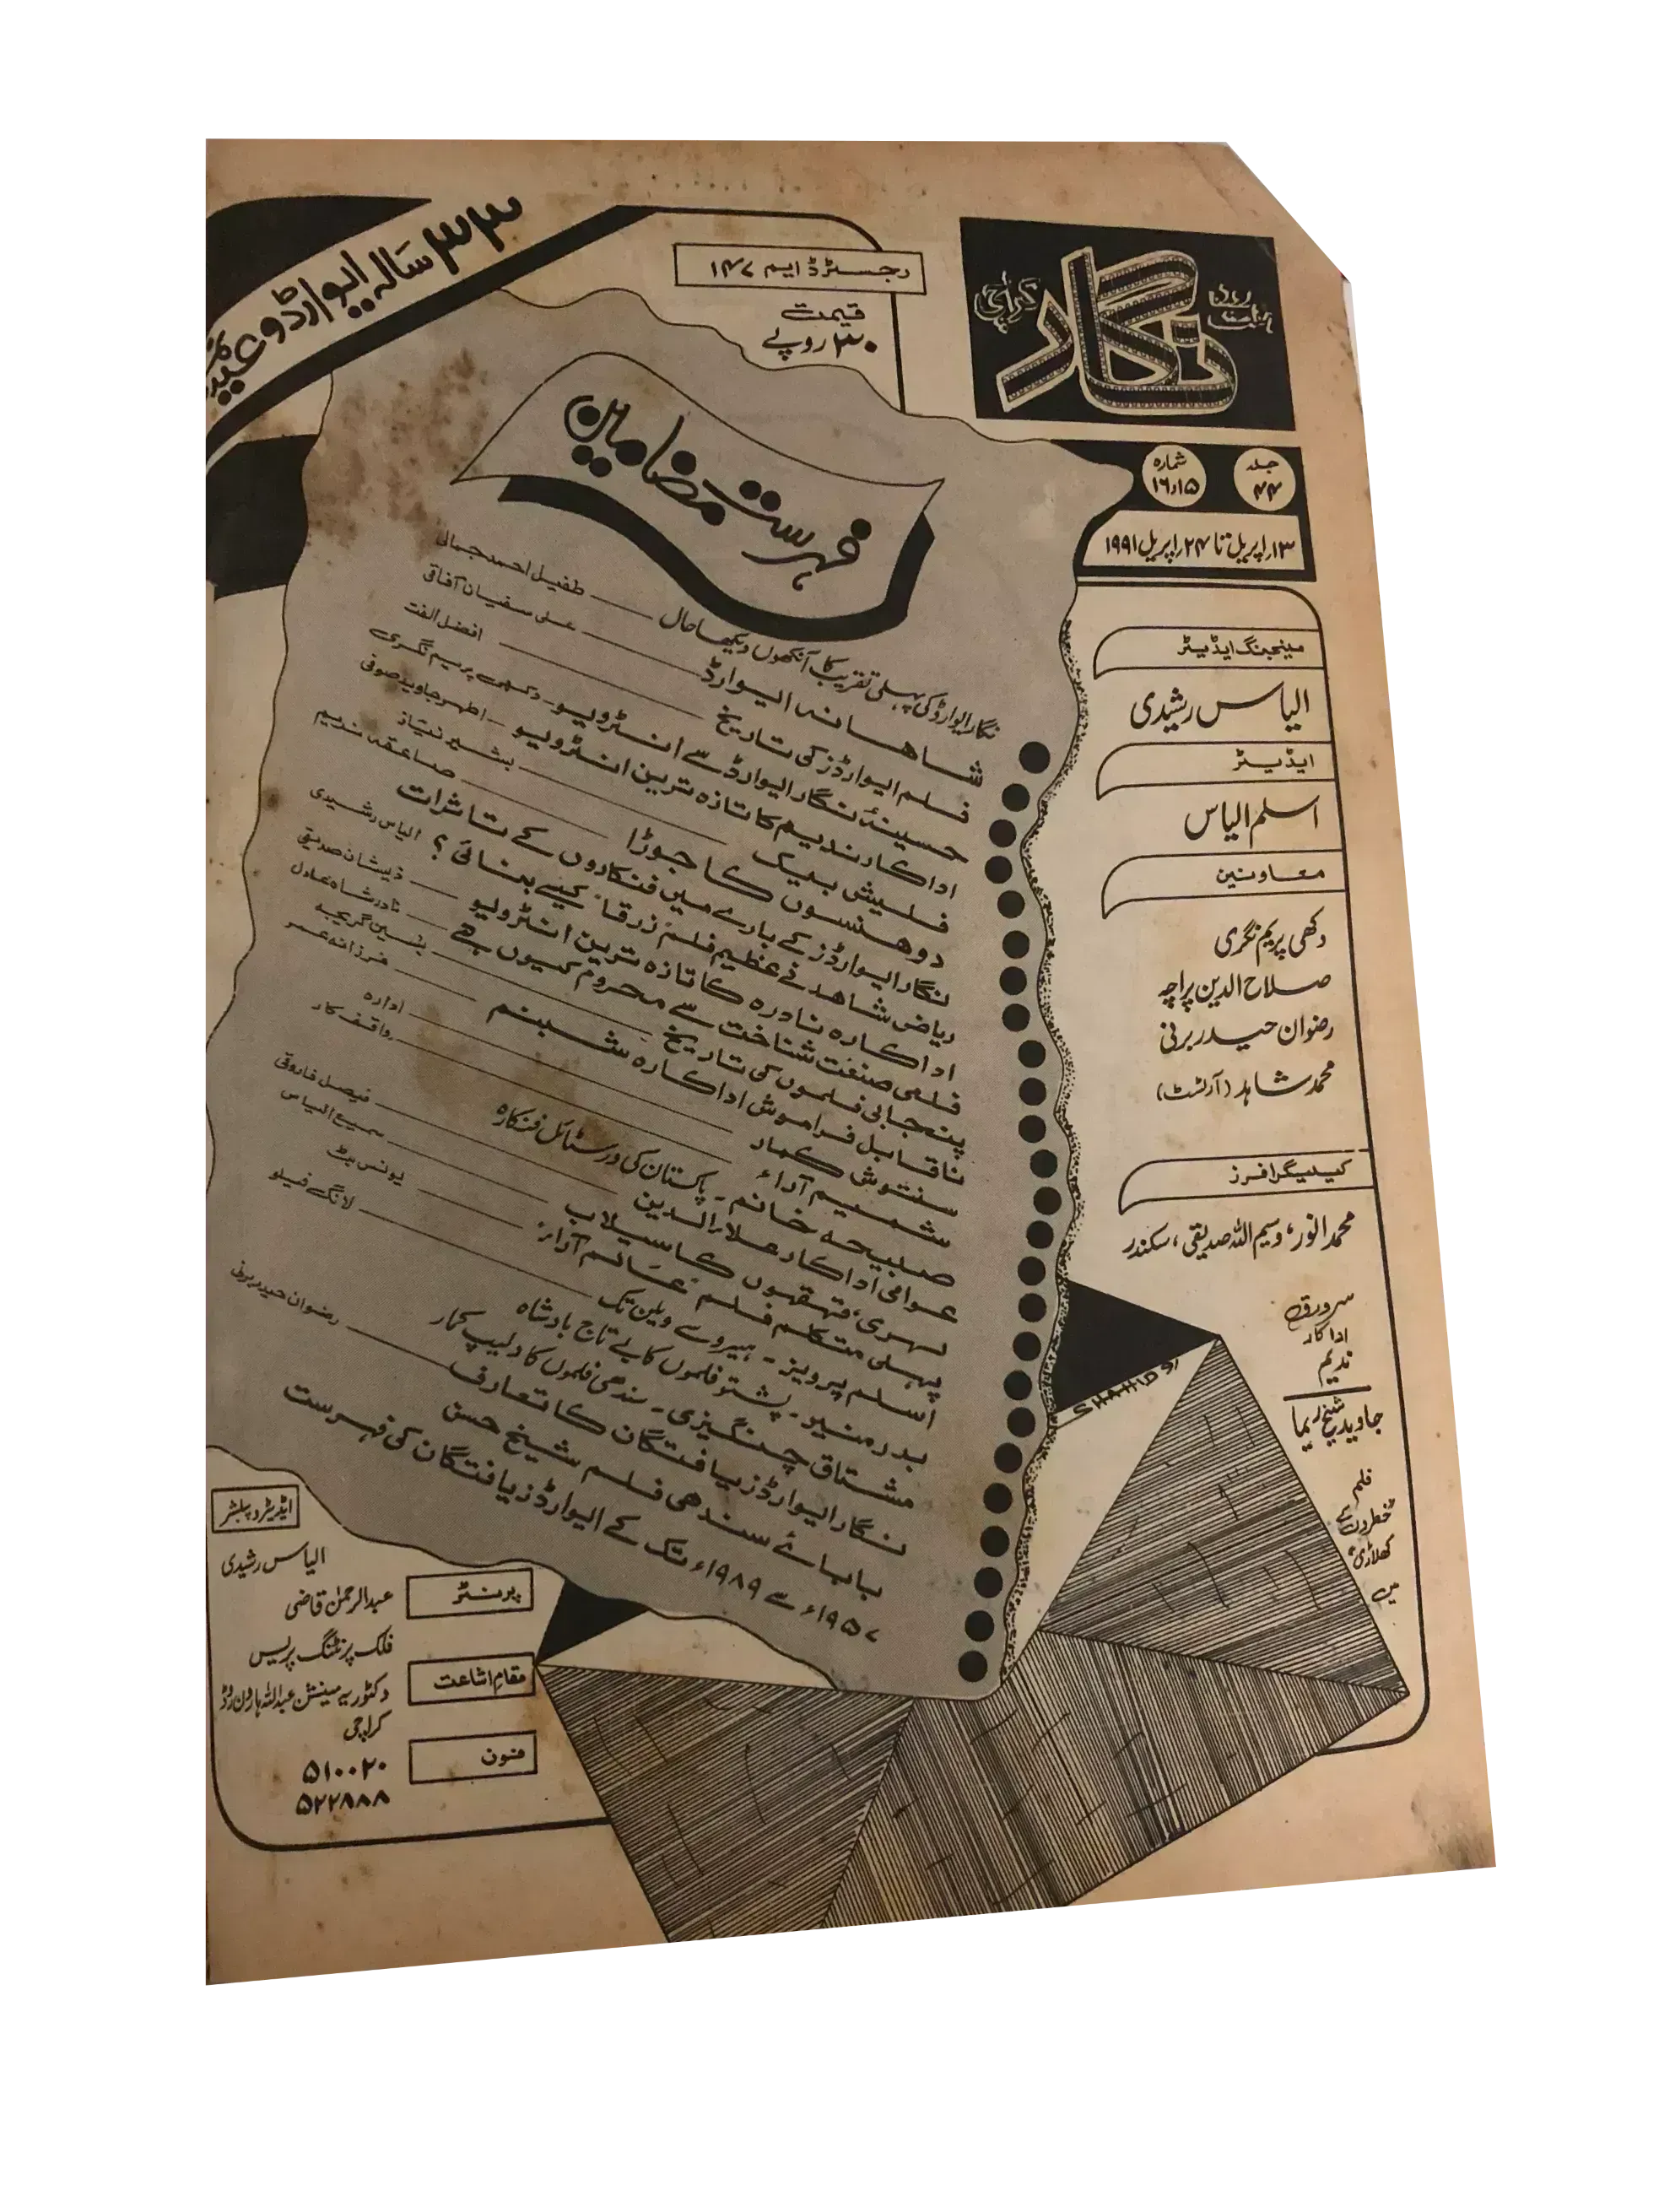 ہفت روزہ
نگار
کراچی
رجسٹرڈ ایم ۱۴۷
قیمت
۳۰ روپے
۳۳ سالہ ایوارڈ و عید
جلد
۴۴
شمارہ
۱۵ر۱۶
۱۳ر اپریل تا ۲۴ر اپریل ۱۹۹۱
مینجنگ ایڈیٹر
الیاس رشیدی
ایڈیٹر
اسلم الیاس
معاونین
دکھی پریم نگری
صلاح الدین پراچہ
رضوان حیدر برنی
محمد شاہد (آرٹسٹ)
کیلیگرافرز
محمد انور، وسیم اللہ صدیقی، سکندر
سرورق
اداکار
ندیم
جاوید شیخ ریما
فلم
"خطروں کے
کھلاڑی"
میں
فہرست مضامین
نگار ایوارڈ کی پہلی تقریب کا آنکھوں دیکھا حال ــــ طفیل احمد جمالی
شاہانہ ایوارڈ ــــ علی سفیان آفاقی
فلم ایوارڈز کی تاریخ ــــ افضل الفت
حسینۂ نگار ایوارڈ سے انٹرویو ــ دکھی پریم نگری
اداکار ندیم کا تازہ ترین انٹرویو ــ اظہر جاوید صوفی
فلیش بیک ــــ بشیر نیاز
دو ہنسوں کا جوڑا ــــ صاعقہ ندیم
نگار ایوارڈز کے بارے میں فنکاروں کے تاثرات
ریاض شاہد نے عظیم فلم "زرقا" کیسے بنائی؟ الیاس رشیدی
اداکارہ نادرہ کا تازہ ترین انٹرویو ــــ ذیشان صدیقی
فلمی صنعت شناخت سے محروم کیوں ہے ــــ نادر شاہ عادل
پنجابی فلموں کی تاریخ ــــ یٰسین گریجہ
ناقابل فراموش اداکارہ شبنم ــــ فرزانہ عمر
سنتوش کمار ــــ ادارہ
شمیم آراء ــــ واقف کار
صبیحہ خانم ــ پاکستان کی ورسٹائل فنکارہ
عوامی اداکار علاؤالدین ــــ فیصل فاروقی
لہری، قہقہوں کا سیلاب ــــ سمیع الیاس
پہلی متکلم فلم "عالم آراء" ــــ یونس بٹ
اسلم پرویز ــ ہیرو سے ویلن تک ــــ لانگ فیلو
بدر منیر ــ پشتو فلموں کا بے تاج بادشاہ
مشتاق چنگیزی ــ سندھی فلموں کا دلیپ کمار
نگار ایوارڈز یافتگان کا تعارف ــــ رضوان حیدر برنی
بابائے سندھی فلم شیخ حسن
۱۹۵۷ء سے ۱۹۸۹ء تک کے ایوارڈز یافتگان کی فہرست
SHAHID 91
ایڈیٹر و پبلشر
الیاس رشیدی
پرنٹر
عبدالرحمٰن قاضی
فلک پرنٹنگ پریس
مقام اشاعت
وکٹوریہ مینشن عبداللہ ہارون روڈ
کراچی
فون
۵۱۰۰۲۰
۵۲۲۸۸۸